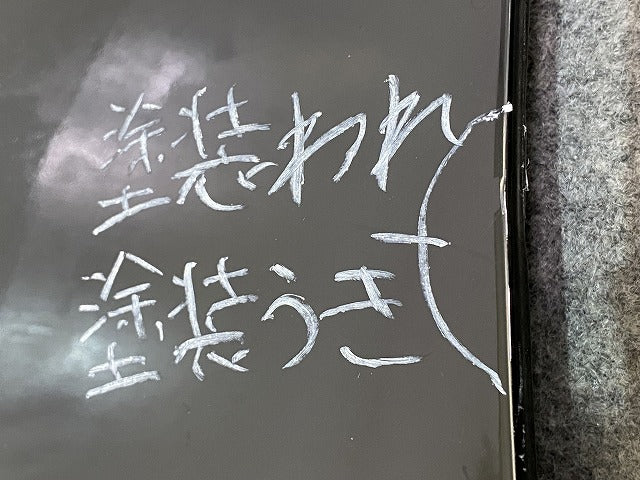 塗装われ
塗装うき